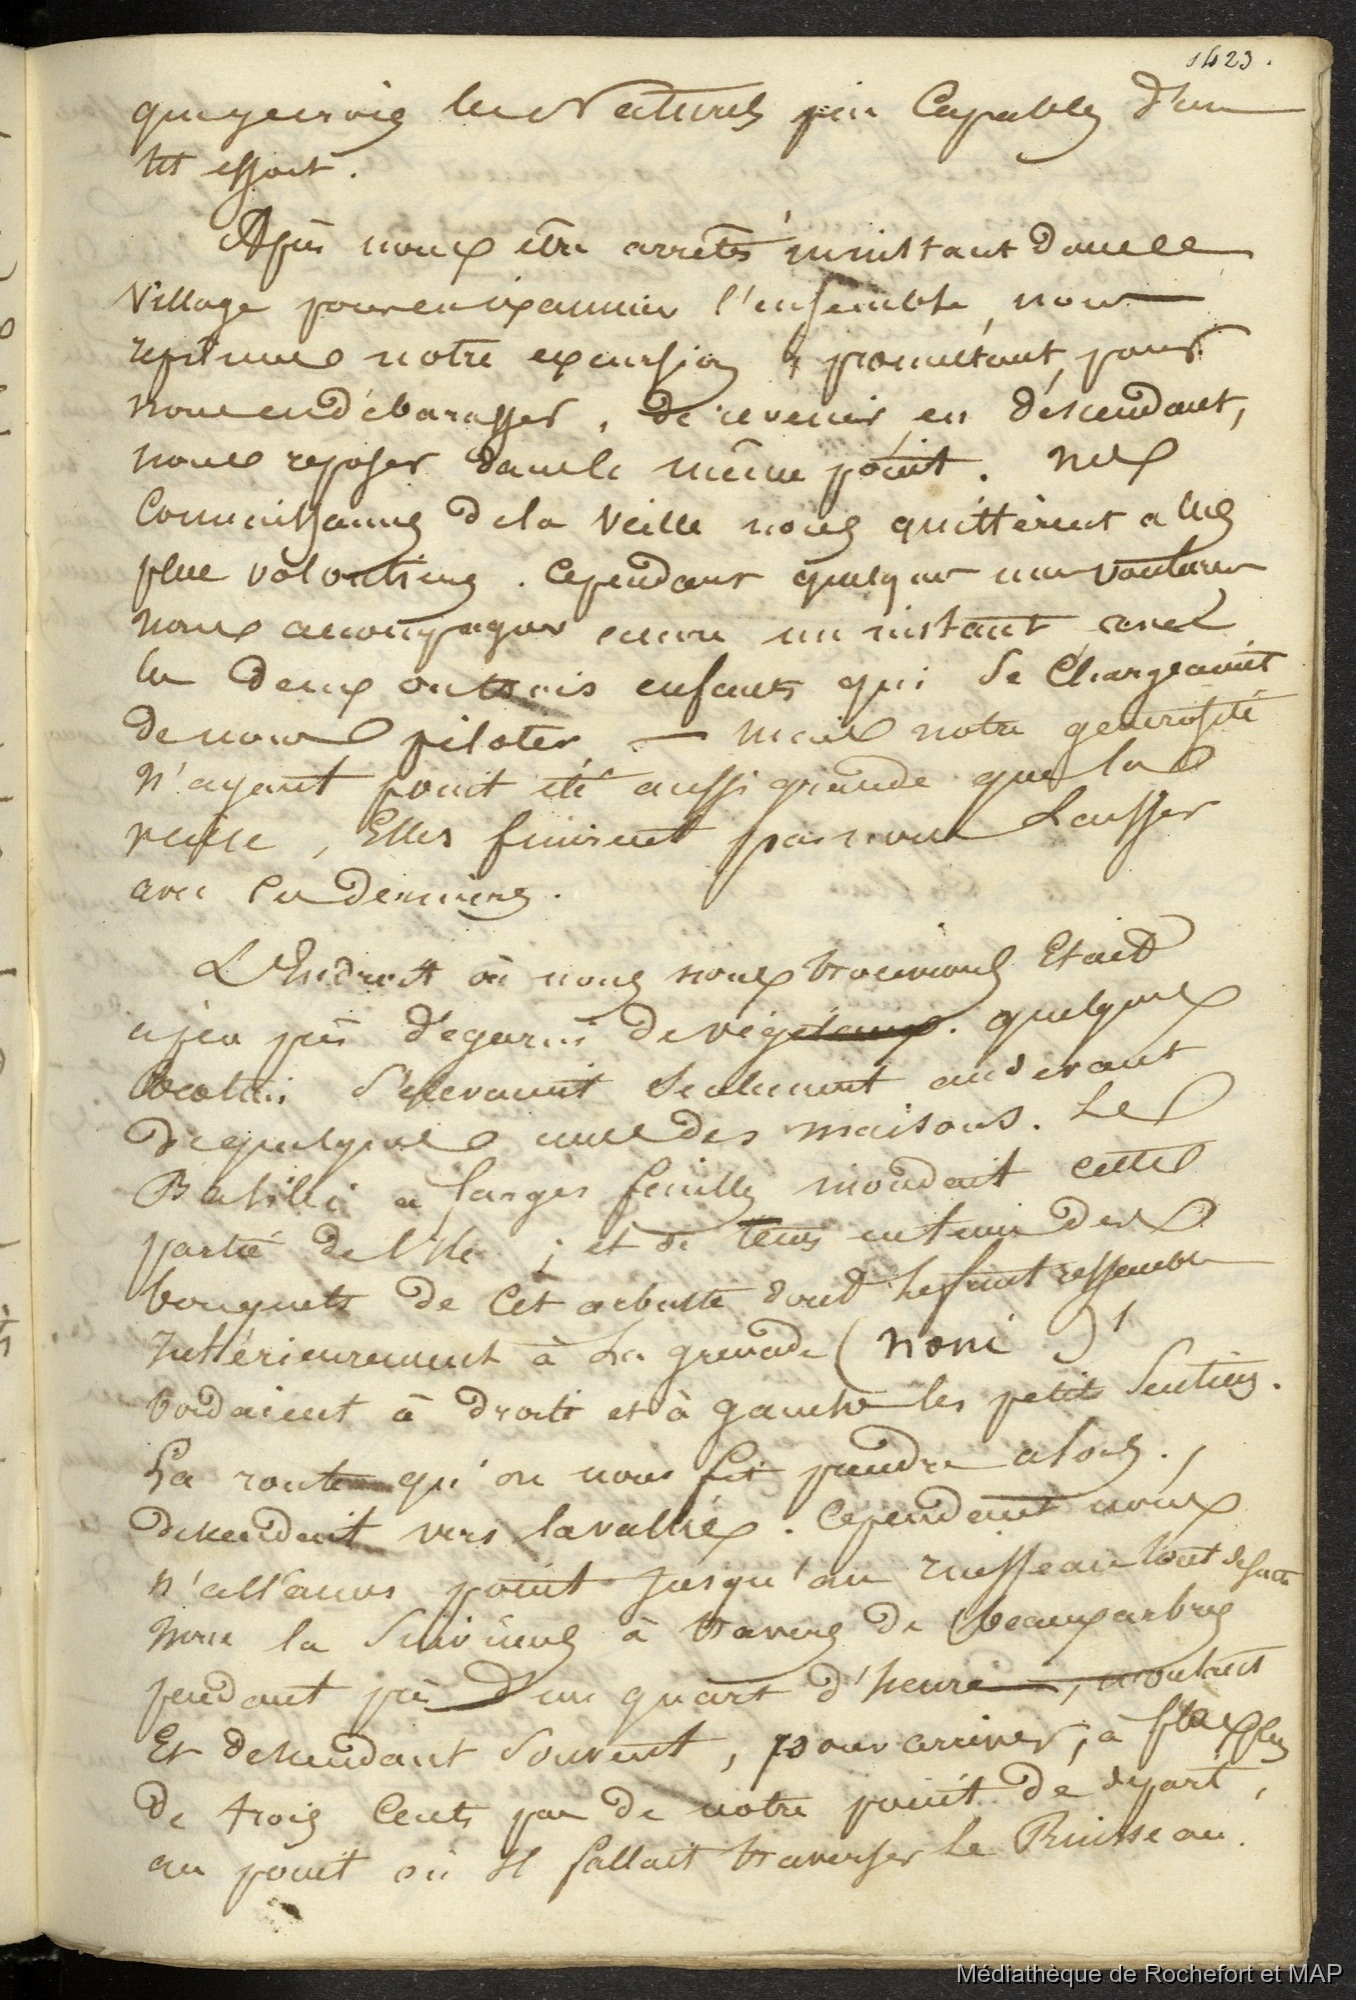 1423.
que je crois les Naturels peu Capables d'un
tel effort.
Après nous être arrêtés un instant dans ce
Village pour en examiner l'ensemble, nous
reprîmes notre excursion promettant, pour
nous en débarasser, de revenir en déscendant,
nous reposer dans le même point. nos
Connaissances de la Veille nous quittèrent alors
plus volontiers. Cependant quelques unes voulurent
nous accompagner encore un instant avec
les deux ou trois enfants qui se Chargeaient
de nous piloter, — mais notre générosité
N'ayant point été aussi grande que la
veille, Elles finirent par nous Laisser
avec ces derniers.
L'Endroit où nous nous trouvions Etait
a peu près dégarni de végétaux. quelques
s'élevaient seulement au devant
de quelques unes des maisons. Le
Basilic a larges feuilles inondait cette
partie de l'île ; et de tems en tems des
bouquets de Cet arbuste dont le fruit ressemble
Intérieurement à La grenade (noni)
bordaient à droite et à gauche les petits Sentiers.
La route qu'on nous fit prendre alors,
descendait vers la vallée. Cependant nous
n'allâmes point jusqu'au ruisseau tout de suite
Nous la Suivîmes à travers de beaux arbres
pendant près d'un quart d'heure, montant
Et descendant Souvent, pour arriver, à plus
de trois Cents pas de notre point de départ,
au point où Il fallait traverser Le Ruisseau.
Médiathèque de Rochefort et MAP